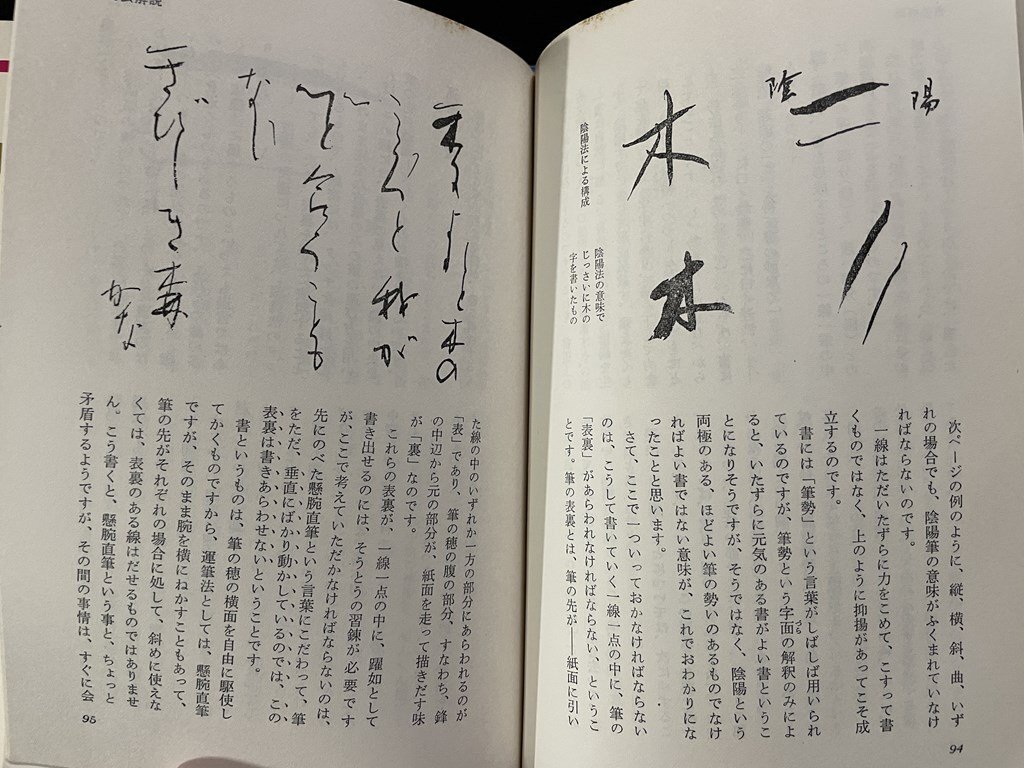 陽
陰
二
木
木
陰陽法による構成
陰陽法の意味で
じっさいに木の
字を書いたもの
次ページの例のように、縦、横、斜、曲、いず
れの場合でも、陰陽筆の意味がふくまれていなけ
ればならないのです。
一線はただいたずらに力をこめて、こすって書
くものではなく、上のように抑揚があってこそ成
立するのです。
書には「筆勢」という言葉がしばしば用いられ
ているのですが、筆勢という字面の解釈のみによ
ると、いたずらに元気のある書がよい書というこ
とになりそうですが、そうではなく、陰陽という
両極のある、ほどよい筆の勢いのあるものでなけ
ればよい書ではない意味が、これでおわかりにな
ったことと思います。
さて、ここで一ついっておかなければならない
のは、こうして書いていく一線一点の中に、筆の
「表裏」があらわれなければならない、というこ
とです。筆の表裏とは、筆の先が――紙面に引い
94
木と木の
と我が
と合うことも
なし
さびしき森
かな
た線の中のいずれか一方の部分にあらわれるのが
「表」であり、筆の穂の腹の部分、すなわち、鋒
の中辺から元の部分が、紙面を走って描きだす味
が「裏」なのです。
これらの表裏が、一線一点の中に、躍如として
書き出せるのには、そうとうの習錬が必要です
が、ここで考えていただかなければならないのは、
先にのべた懸腕直筆という言葉にこだわって、筆
をただ、垂直にばかり動かしているのでは、この
表裏は書きあらわせないということです。
書というものは、筆の穂の横面を自由に駆使し
てかくものですから、運筆法としては、懸腕直筆
ですが、そのまま腕を横にねかすこともあって、
筆の先がそれぞれの場合に処して、斜めに使えな
くては、表裏のある線はだせるものではありませ
ん。こう書くと、懸腕直筆という事と、ちょっと
矛盾するようですが、その間の事情は、すぐに会
95